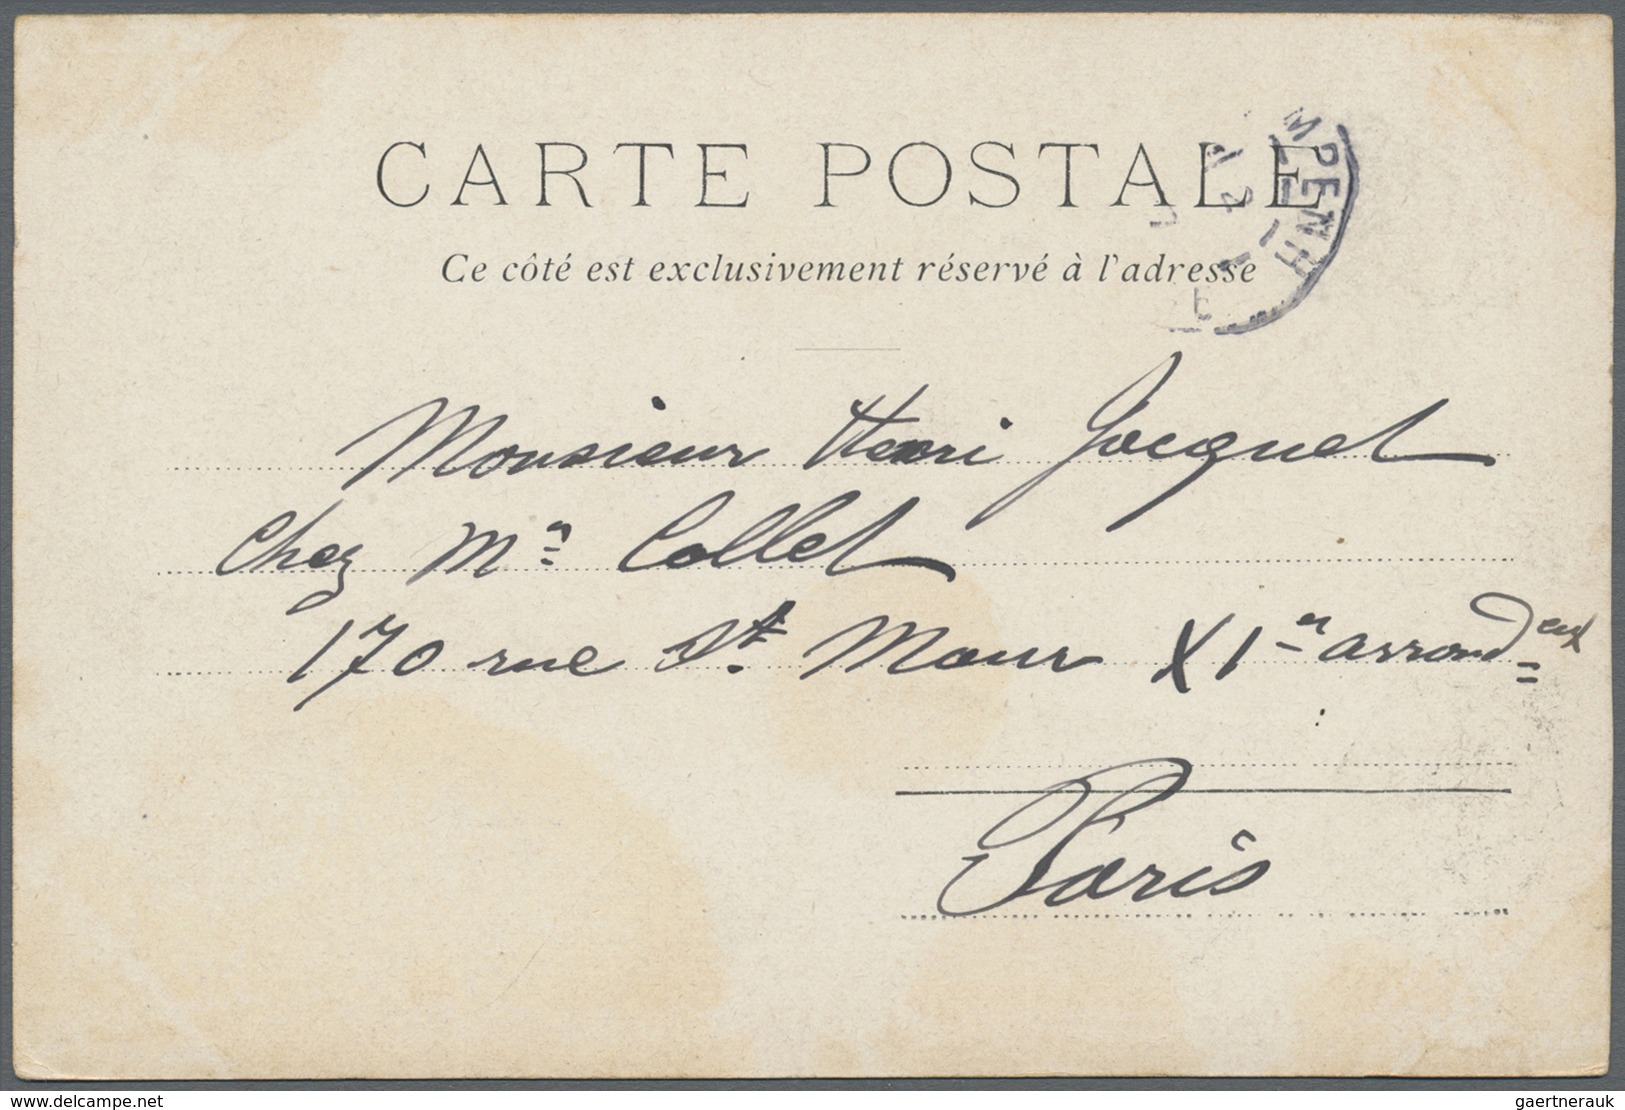 CARTE POSTALE
MPENH
Ce côté est exclusivement réservé à l'adresse
Monsieur Henri Jacquet
Chez Mr Collet
170 rue St. Maur XIer arrond
Paris
delcampe.net
gaertnerauk